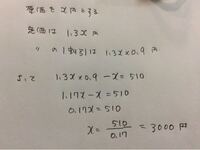 原価を x円とする
定価は 1.3x 円
〃 の1割引は 1.3x×0.9 円
よって 1.3x×0.9 −x=510
1.17x −x=510
0.17x=510
x= 510/0.17 =3000 円